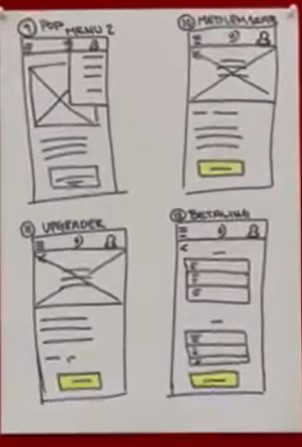 9 POP MENU 2
10 MEDLEMSKAB
11 UPGRADER
12 BETALING